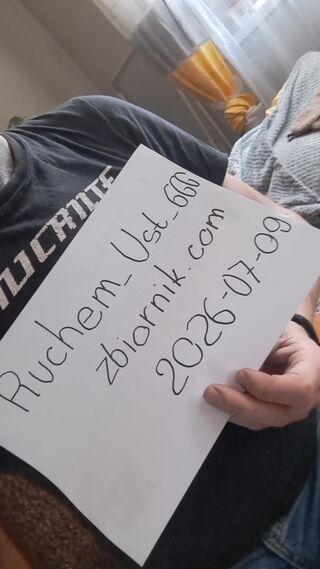 Ruchem_Ust_666
zbiornik.com
2026-07-09